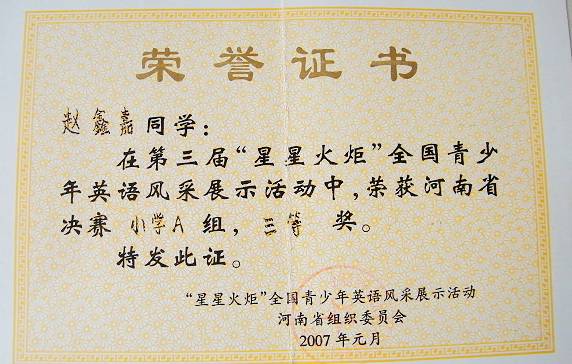 荣誉证书
赵鑫嘉同学：
在第三届“星星火炬”全国青少
年英语风采展示活动中，荣获河南省
决赛 小学A 组，三等 奖。
特发此证。
“星星火炬”全国青少年英语风采展示活动
河南省组织委员会
2007 年元月